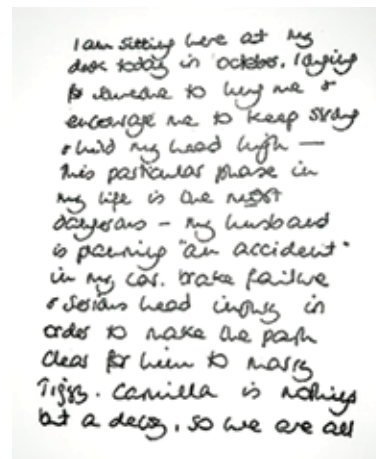 I am sitting here at my
desk today in october, longing
for someone to hug me &
encourage me to keep strong
& hold my head high —
this particular phase in
my life is the most
dangerous – my husband
is planning "an accident"
in my car. brake failure
& serious head injury in
order to make the path
clear for him to marry
Tiggy. Camilla is nothing
but a decoy, so we are all